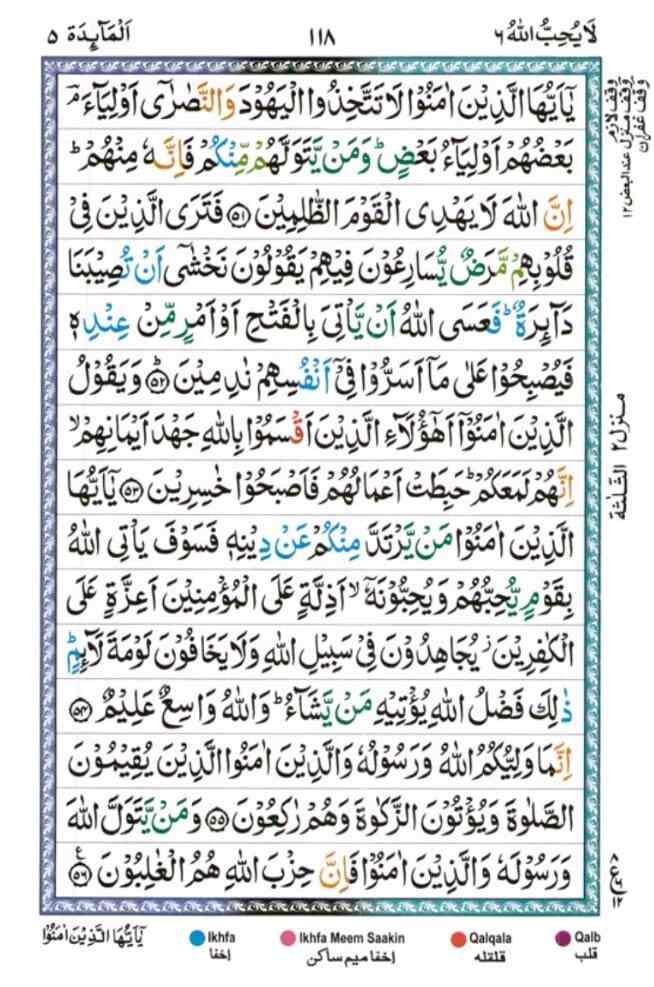 لَا يُحِبُّ اللهُ ٦
١١٨
اَلْمَآئِدَة ٥
يٰۤاَيُّهَا الَّذِيْنَ اٰمَنُوْا لَا تَتَّخِذُوا الْيَهُوْدَ وَالنَّصٰرٰۤى اَوْلِيَآءَ ۘ
بَعْضُهُمْ اَوْلِيَآءُ بَعْضٍ ؕ وَمَنْ يَّتَوَلَّهُمْ مِّنْكُمْ فَاِنَّهٗ مِنْهُمْ ؕ
اِنَّ اللهَ لَا يَهْدِى الْقَوْمَ الظّٰلِمِيْنَ ﴿٥١﴾ فَتَرَى الَّذِيْنَ فِىْ
قُلُوْبِهِمْ مَّرَضٌ يُّسَارِعُوْنَ فِيْهِمْ يَقُوْلُوْنَ نَخْشٰۤى اَنْ تُصِيْبَنَا
دَآئِرَةٌ ؕ فَعَسَى اللهُ اَنْ يَّاْتِىَ بِالْفَتْحِ اَوْ اَمْرٍ مِّنْ عِنْدِهٖ
فَيُصْبِحُوْا عَلٰى مَاۤ اَسَرُّوْا فِىْۤ اَنْفُسِهِمْ نٰدِمِيْنَ ﴿٥٢﴾ ؕ وَيَقُوْلُ
الَّذِيْنَ اٰمَنُوْۤا اَهٰۤؤُلَآءِ الَّذِيْنَ اَقْسَمُوْا بِاللهِ جَهْدَ اَيْمَانِهِمْ ۙ
اِنَّهُمْ لَمَعَكُمْ ؕ حَبِطَتْ اَعْمَالُهُمْ فَاَصْبَحُوْا خٰسِرِيْنَ ﴿٥٣﴾ يٰۤاَيُّهَا
الَّذِيْنَ اٰمَنُوْا مَنْ يَّرْتَدَّ مِنْكُمْ عَنْ دِيْنِهٖ فَسَوْفَ يَاْتِى اللهُ
بِقَوْمٍ يُّحِبُّهُمْ وَيُحِبُّوْنَهٗۤ ۙ اَذِلَّةٍ عَلَى الْمُؤْمِنِيْنَ اَعِزَّةٍ عَلَى
الْكٰفِرِيْنَ ؗ يُجَاهِدُوْنَ فِىْ سَبِيْلِ اللهِ وَلَا يَخَافُوْنَ لَوْمَةَ لَآئِمٍ ؕ
ذٰلِكَ فَضْلُ اللهِ يُؤْتِيْهِ مَنْ يَّشَآءُ ؕ وَاللهُ وَاسِعٌ عَلِيْمٌ ﴿٥٤﴾
اِنَّمَا وَلِيُّكُمُ اللهُ وَرَسُوْلُهٗ وَالَّذِيْنَ اٰمَنُوا الَّذِيْنَ يُقِيْمُوْنَ
الصَّلٰوةَ وَيُؤْتُوْنَ الزَّكٰوةَ وَهُمْ رٰكِعُوْنَ ﴿٥٥﴾ وَمَنْ يَّتَوَلَّ اللهَ
وَرَسُوْلَهٗ وَالَّذِيْنَ اٰمَنُوْا فَاِنَّ حِزْبَ اللهِ هُمُ الْغٰلِبُوْنَ ﴿٥٦﴾ ع
وقف لازم
وقف منزل عند البعض ١٢
وقف غفران
منزل ٢
الثلثة
٨
ع
١٢
يٰۤاَيُّهَا الَّذِيْنَ اٰمَنُوْا
Ikhfa
اخفا
Ikhfa Meem Saakin
اخفا ميم ساكن
Qalqala
قلقله
Qalb
قلب